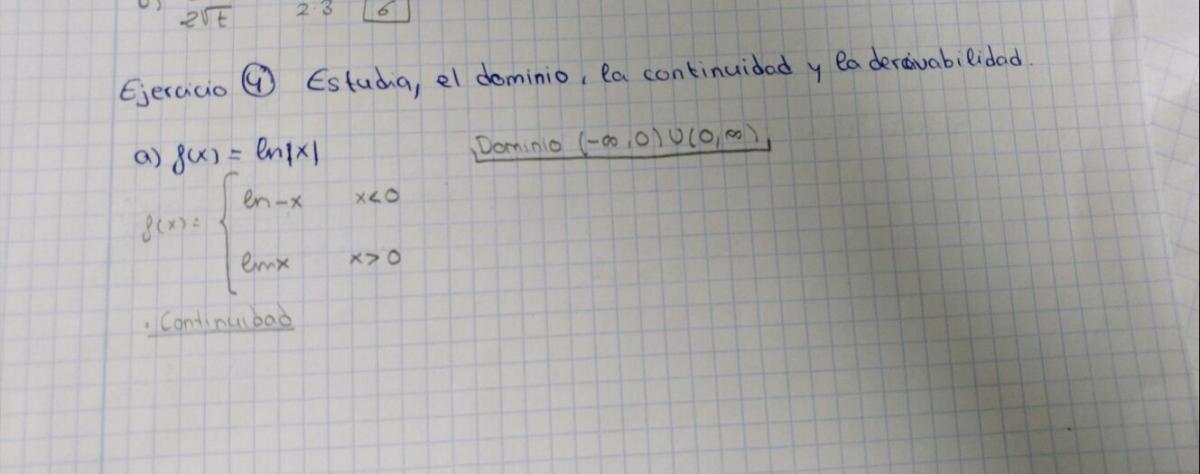 2√t 2·3 6
Ejercicio ④ Estudia, el dominio, la continuidad y la derivabilidad.
a) f(x) = ln|x| Dominio (-∞,0)∪(0,∞)
f(x)= { ln-x x<0
lnx x>0
· Continuidad